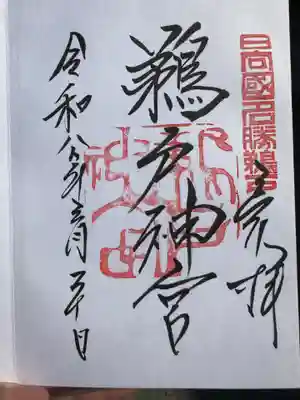 日向國名勝鵜戸
奉拝
鵜戸神宮
令和八年月十日